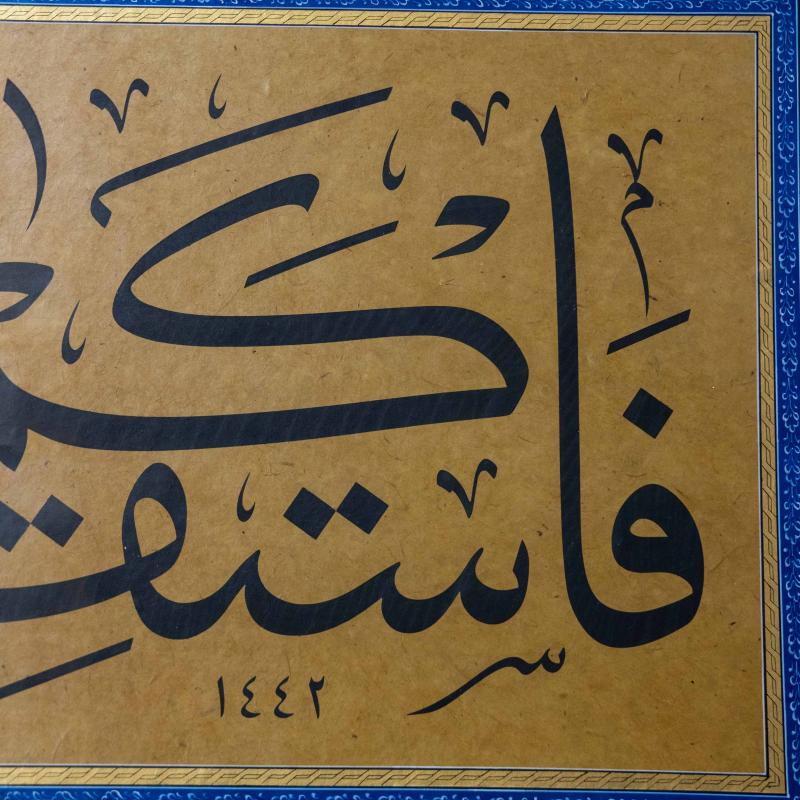 فَاسْتَقِمْ
كَمَا
١٤٤٢